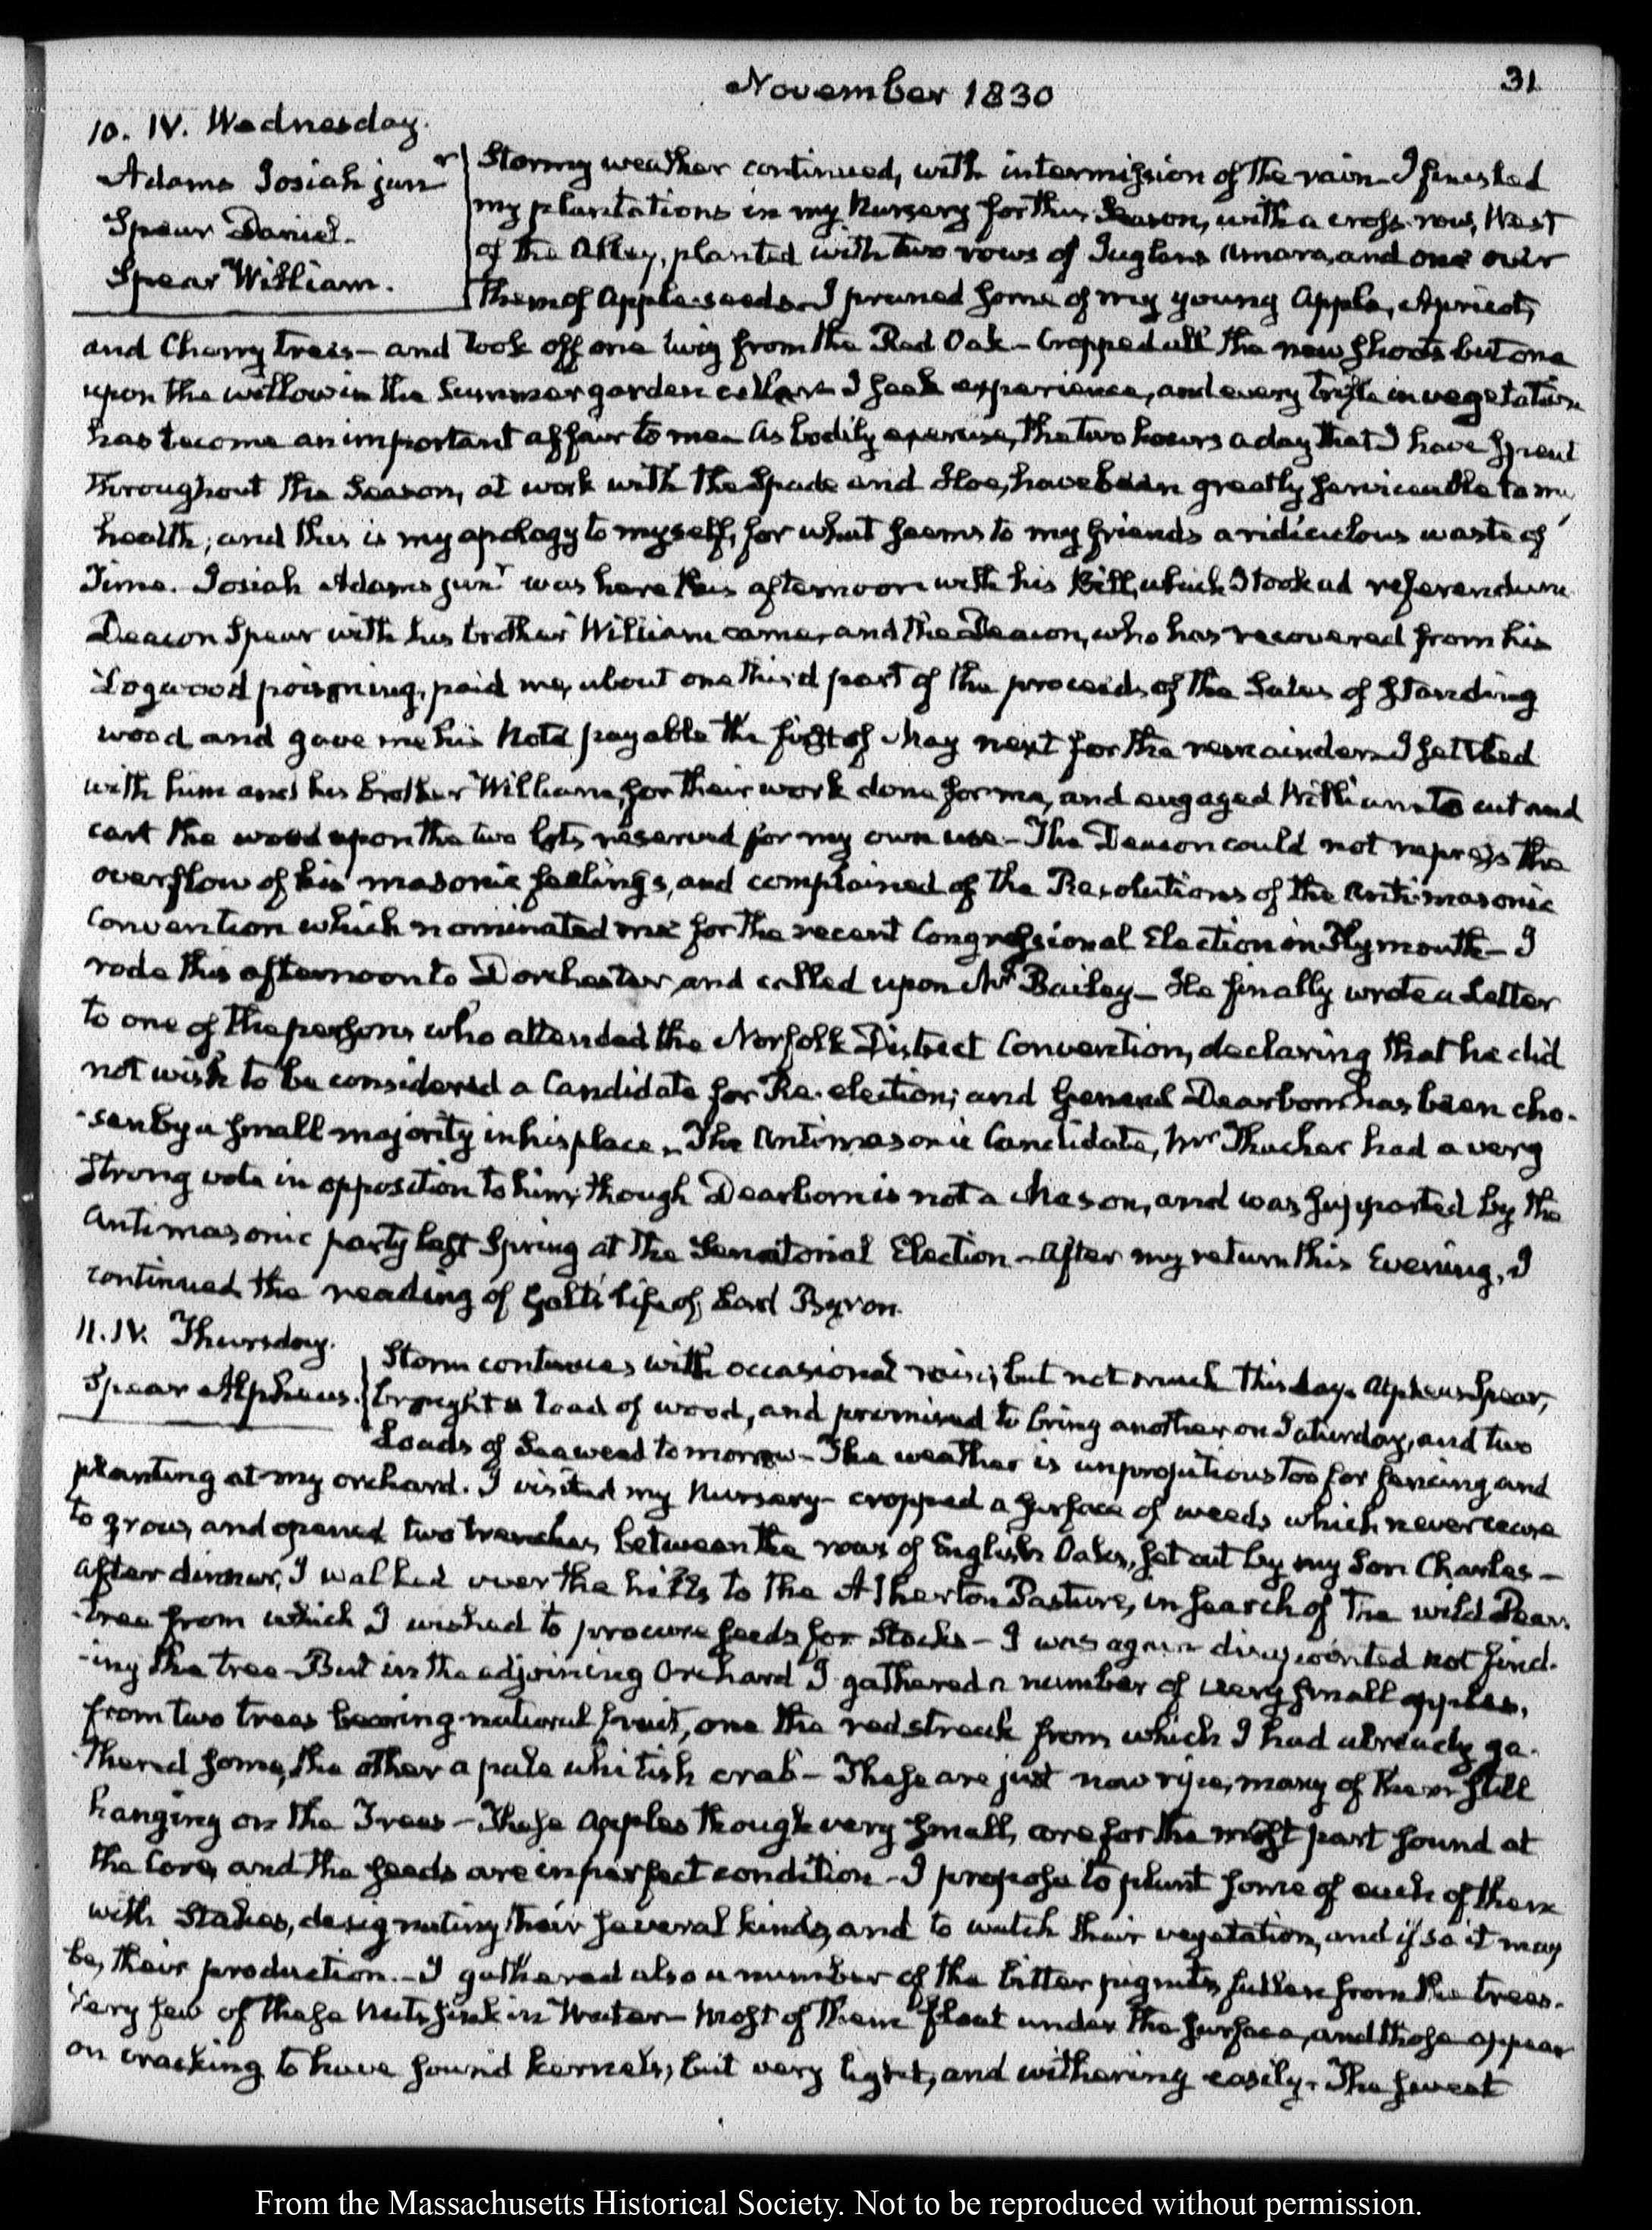 November 1830
31
10. IV. Wednesday.
Adams Josiah junr
Spear Daniel.
Spear William.
Stormy weather continued, with intermission of the rain. I finished
my plantations in my Nursery for this Season, with a cross row, West
of the Alley, planted with two rows of Juglans Amara, and one over
them of Apple seeds. I pruned some of my young Apple, Apricot,
and Cherry trees — and took off one twig from the Red Oak — Cropped all the new shoots but one
upon the willow in the Summer garden cellar. I seek experience, and every trifle in vegetation
has become an important affair to me. As bodily exercise, the two hours a day that I have spent
throughout the Season, at work with the Spade and Hoe, have been greatly serviceable to my
health; and this is my apology to myself, for what seems to my friends a ridiculous waste of
Time. Josiah Adams junr was here this afternoon with his Bill, which I took ad referendum
Deacon Spear with his brother William came, and the Deacon, who has recovered from his
Logwood poisoning, paid me, about one third part of the proceeds of the Sales of standing
wood and gave me his Note payable the first of May next for the remainder. I settled
with him and his brother William, for their work done for me, and engaged William to cut and
cart the wood upon the two lots reserved for my own use — The Deacon could not repress the
overflow of his masonic feelings, and complained of the Resolutions of the Antimasonic
Convention which nominated me for the recent Congressional Election in Plymouth — I
rode this afternoon to Dorchester, and called upon Mr Bailey — He finally wrote a Letter
to one of the persons who attended the Norfolk District Convention, declaring that he did
not wish to be considered a Candidate for Re-election; and General Dearborn has been cho-
-sen by a small majority in his place. The Antimasonic Candidate, Mr Thacher had a very
strong vote in opposition to him, though Dearborn is not a Mason, and was supported by the
Antimasonic party last Spring at the Senatorial Election — After my return this Evening, I
continued the reading of Galt's life of Lord Byron.
11. IV. Thursday.
Spear Alpheus.
Storm continues with occasional rain; but not much this day. Alpheus Spear,
brought a load of wood, and promised to bring another on Saturday, and two
Loads of Seaweed tomorrow — The weather is unpropitious too for fencing and
planting at my orchard. I visited my Nursery — cropped a surface of weeds which never cease
to grow, and opened two trenches, between the rows of English Oaks, set out by my Son Charles —
After dinner, I walked over the hills to the Atherton Pasture, in search of the wild Pear-
-tree from which I wished to procure seeds for Stocks — I was again disappointed not find-
-ing the tree — But in the adjoining Orchard I gathered a number of very small apples,
from two trees bearing natural fruit, one the redstreak from which I had already ga-
-thered some, the other a pale whitish crab — These are just now ripe, many of them still
hanging on the Trees — These Apples though very small, are for the most part sound at
the Core, and the seeds are in perfect condition — I propose to plant some of each of them
with Stakes, designating their several kinds, and to watch their vegetation, and if so it may
be, their production. — I gathered also a number of the bitter pignuts, fallen from the trees.
Very few of these Nuts sink in Water — most of them float under the surface, and those appear
on cracking to have sound kernels, but very light, and withering easily. The sweet
From the Massachusetts Historical Society. Not to be reproduced without permission.